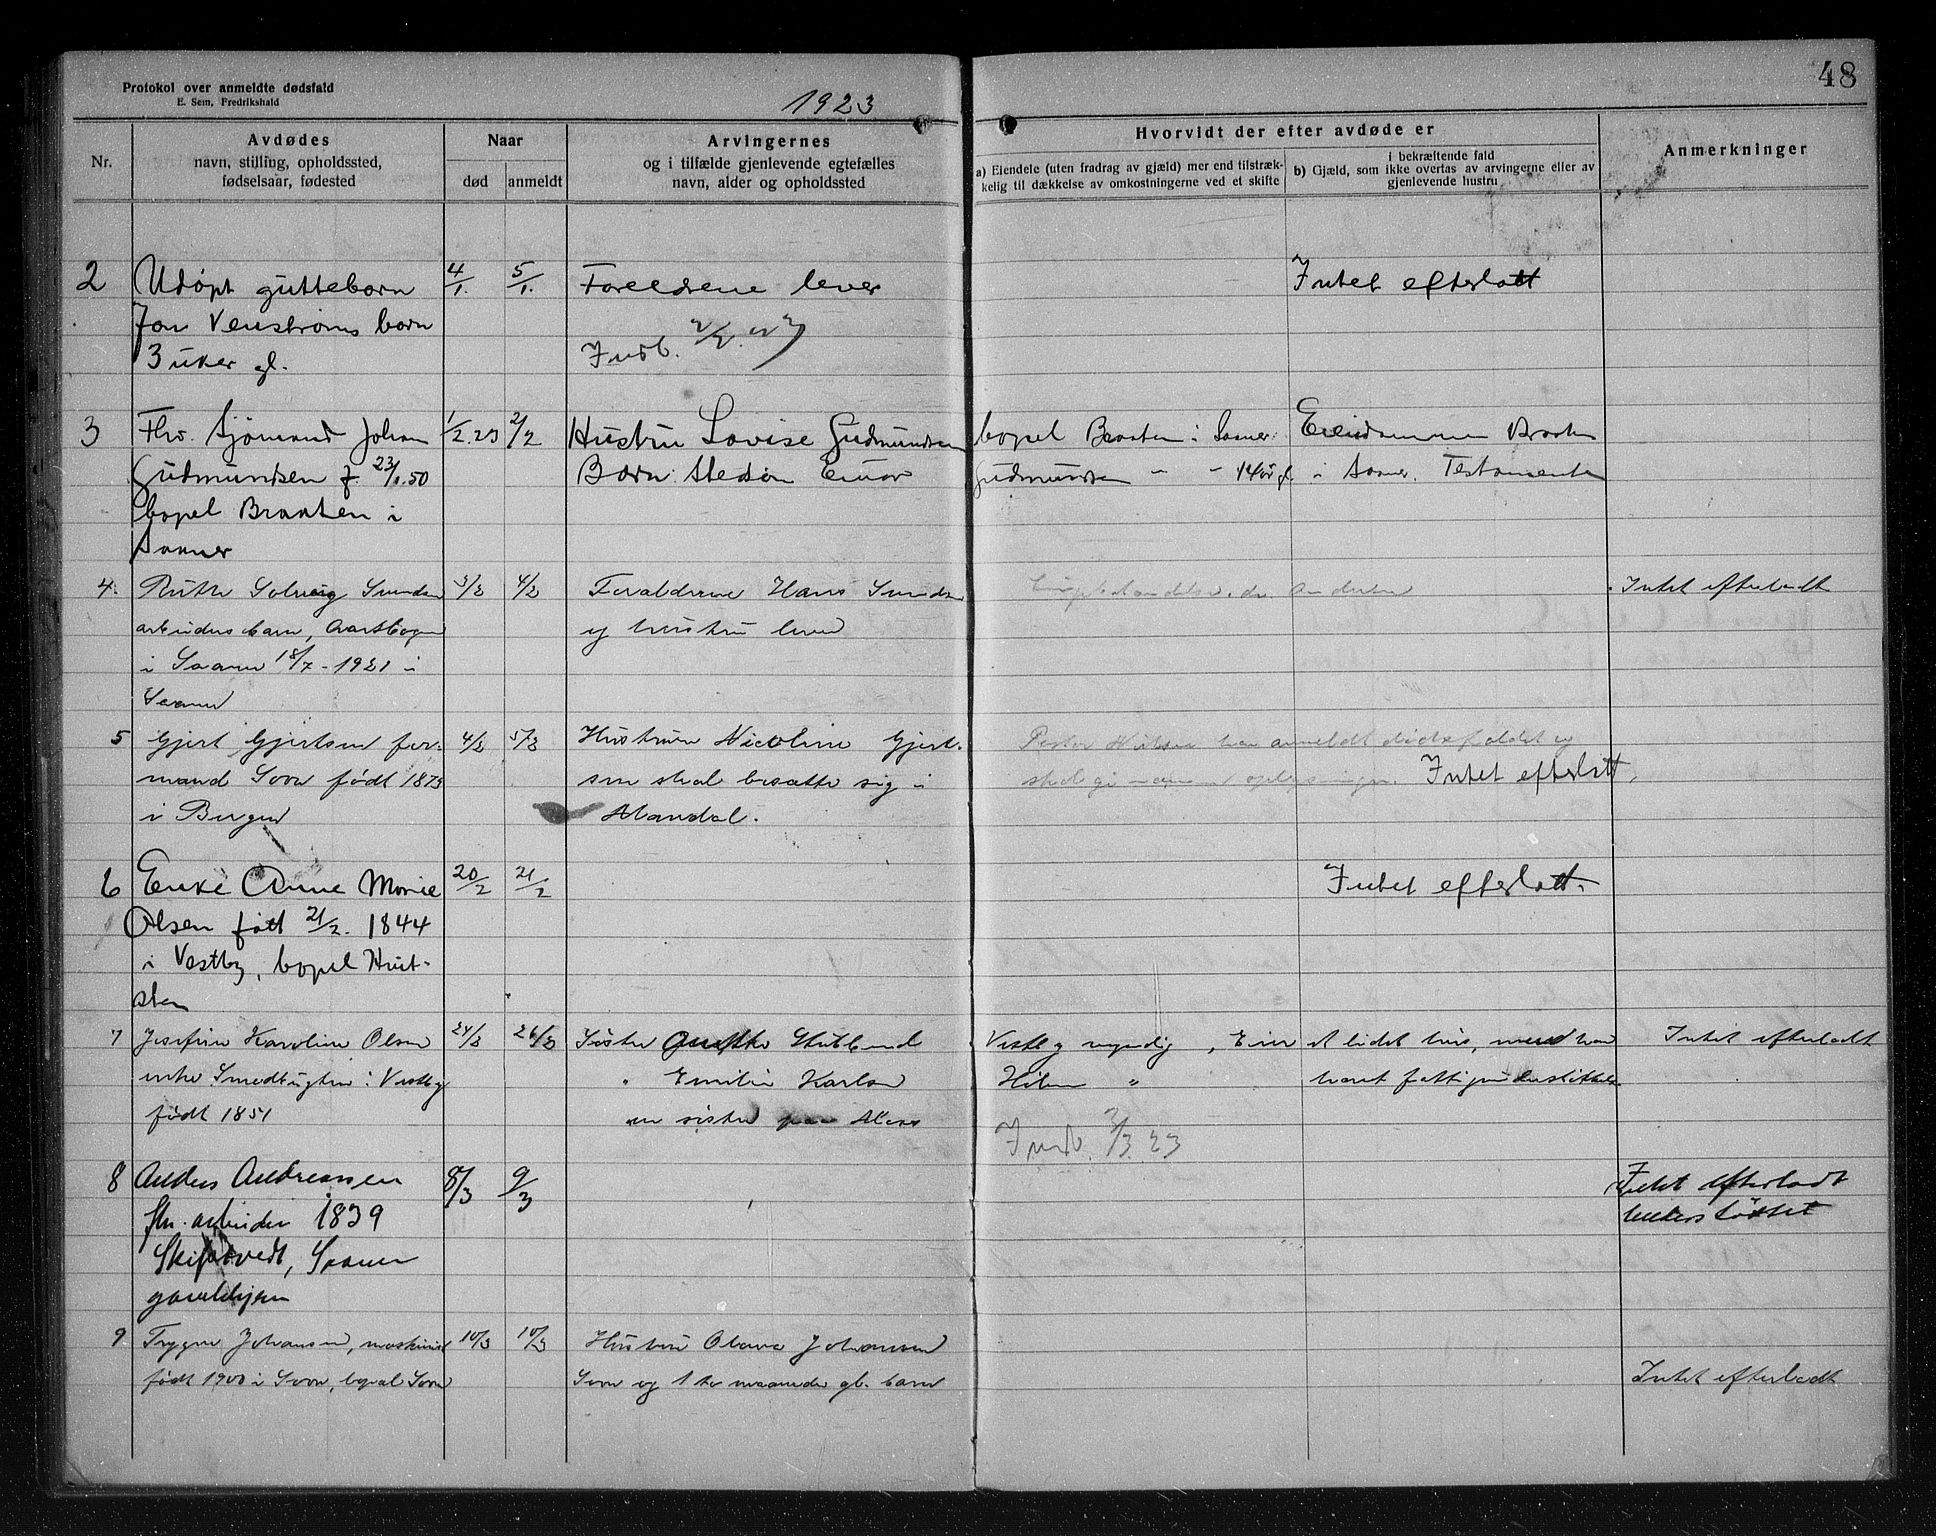 48
Protokol over anmeldte dødsfald
E. Sem, Fredrikshald
1923
Nr.
Avdødes
navn, stilling, opholdssted,
fødselsaar, fødested
Naar
død
anmeldt
Arvingernes
og i tilfælde gjenlevende egtefælles
navn, alder og opholdssted
Hvorvidt der efter avdøde er
a) Eiendele (uten fradrag av gjæld) mer end tilstræk-
kelig til dækkelse av omkostningerne ved et skifte
i bekræftende fald
b) Gjæld, som ikke overtas av arvingerne eller av
gjenlevende hustru
Anmerkninger
2 Udøpt guttebarn 4/1. 5/1. Foreldrene lever Intet efterlatt
Jon Venstrøms barn
3 uker gl. Indb. 2/2. 23
3 Fhv. Sjømand Johan 1/2.23 2/2 Hustru Lovise Gudmundsen bopel Braaten i Saaner. Eiendommen Braaten
Gudmundsen f. 23/1.50 Barn: Stedsøn Einar Gudmundsen " " 14 år gl. i Saaner. Testamente
bopel Braaten i
Saaner
4. Ruth Solveig Svendsen 3/2 4/2 Forældrene Hans Svendsen Andersen Intet efterladt
arbeiders barn, og hustru lever
i Saaner 18/7 - 1921 i
Saaner
5 Gjert Gjertsen for- 4/2 5/2 Hustruen Nicoline Gjert- har anmeldt dødsfaldet og
mand Soon født 1873 sen skal bosætte sig i skal gi oplysninger. Intet efterlatt.
i Bergen Mandal.
6 Enke Anne Marie 20/2 21/2 Intet efterlatt.
Olsen født 21/2. 1844
i Vestby, bopel Hvit-
sten
7 Josefine Karoline Olsen 24/2 26/2 Søster Stubberud Vestby myndig, Eier et lidet hus, men har Intet efterladt
enke Smedbugten i Vestby " Emilie Karlsen " været fattigunderstøttet
født 1851 en søster paa Moss
Indb. 2/3. 23
8 Anders Andreassen 8/3 9/3 Intet efterladt
fhv. arbeider 1839 understøttet
Skiptvedt, Saaner
gamlehjem
9 Trygve Johansen, maskinist 10/3 10/3 Hustru Olava Johansen
født 1900 i Soon, bopæl Soon Soon og 1 to maaneder gl. barn Intet efterladt